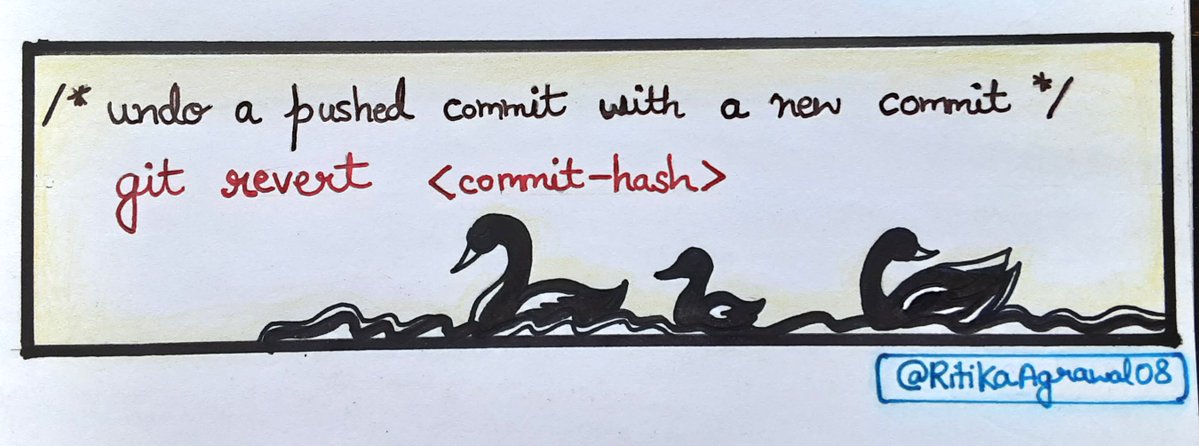 /* undo a pushed commit with a new commit */
git revert <commit-hash>
@RitikaAgrawal08